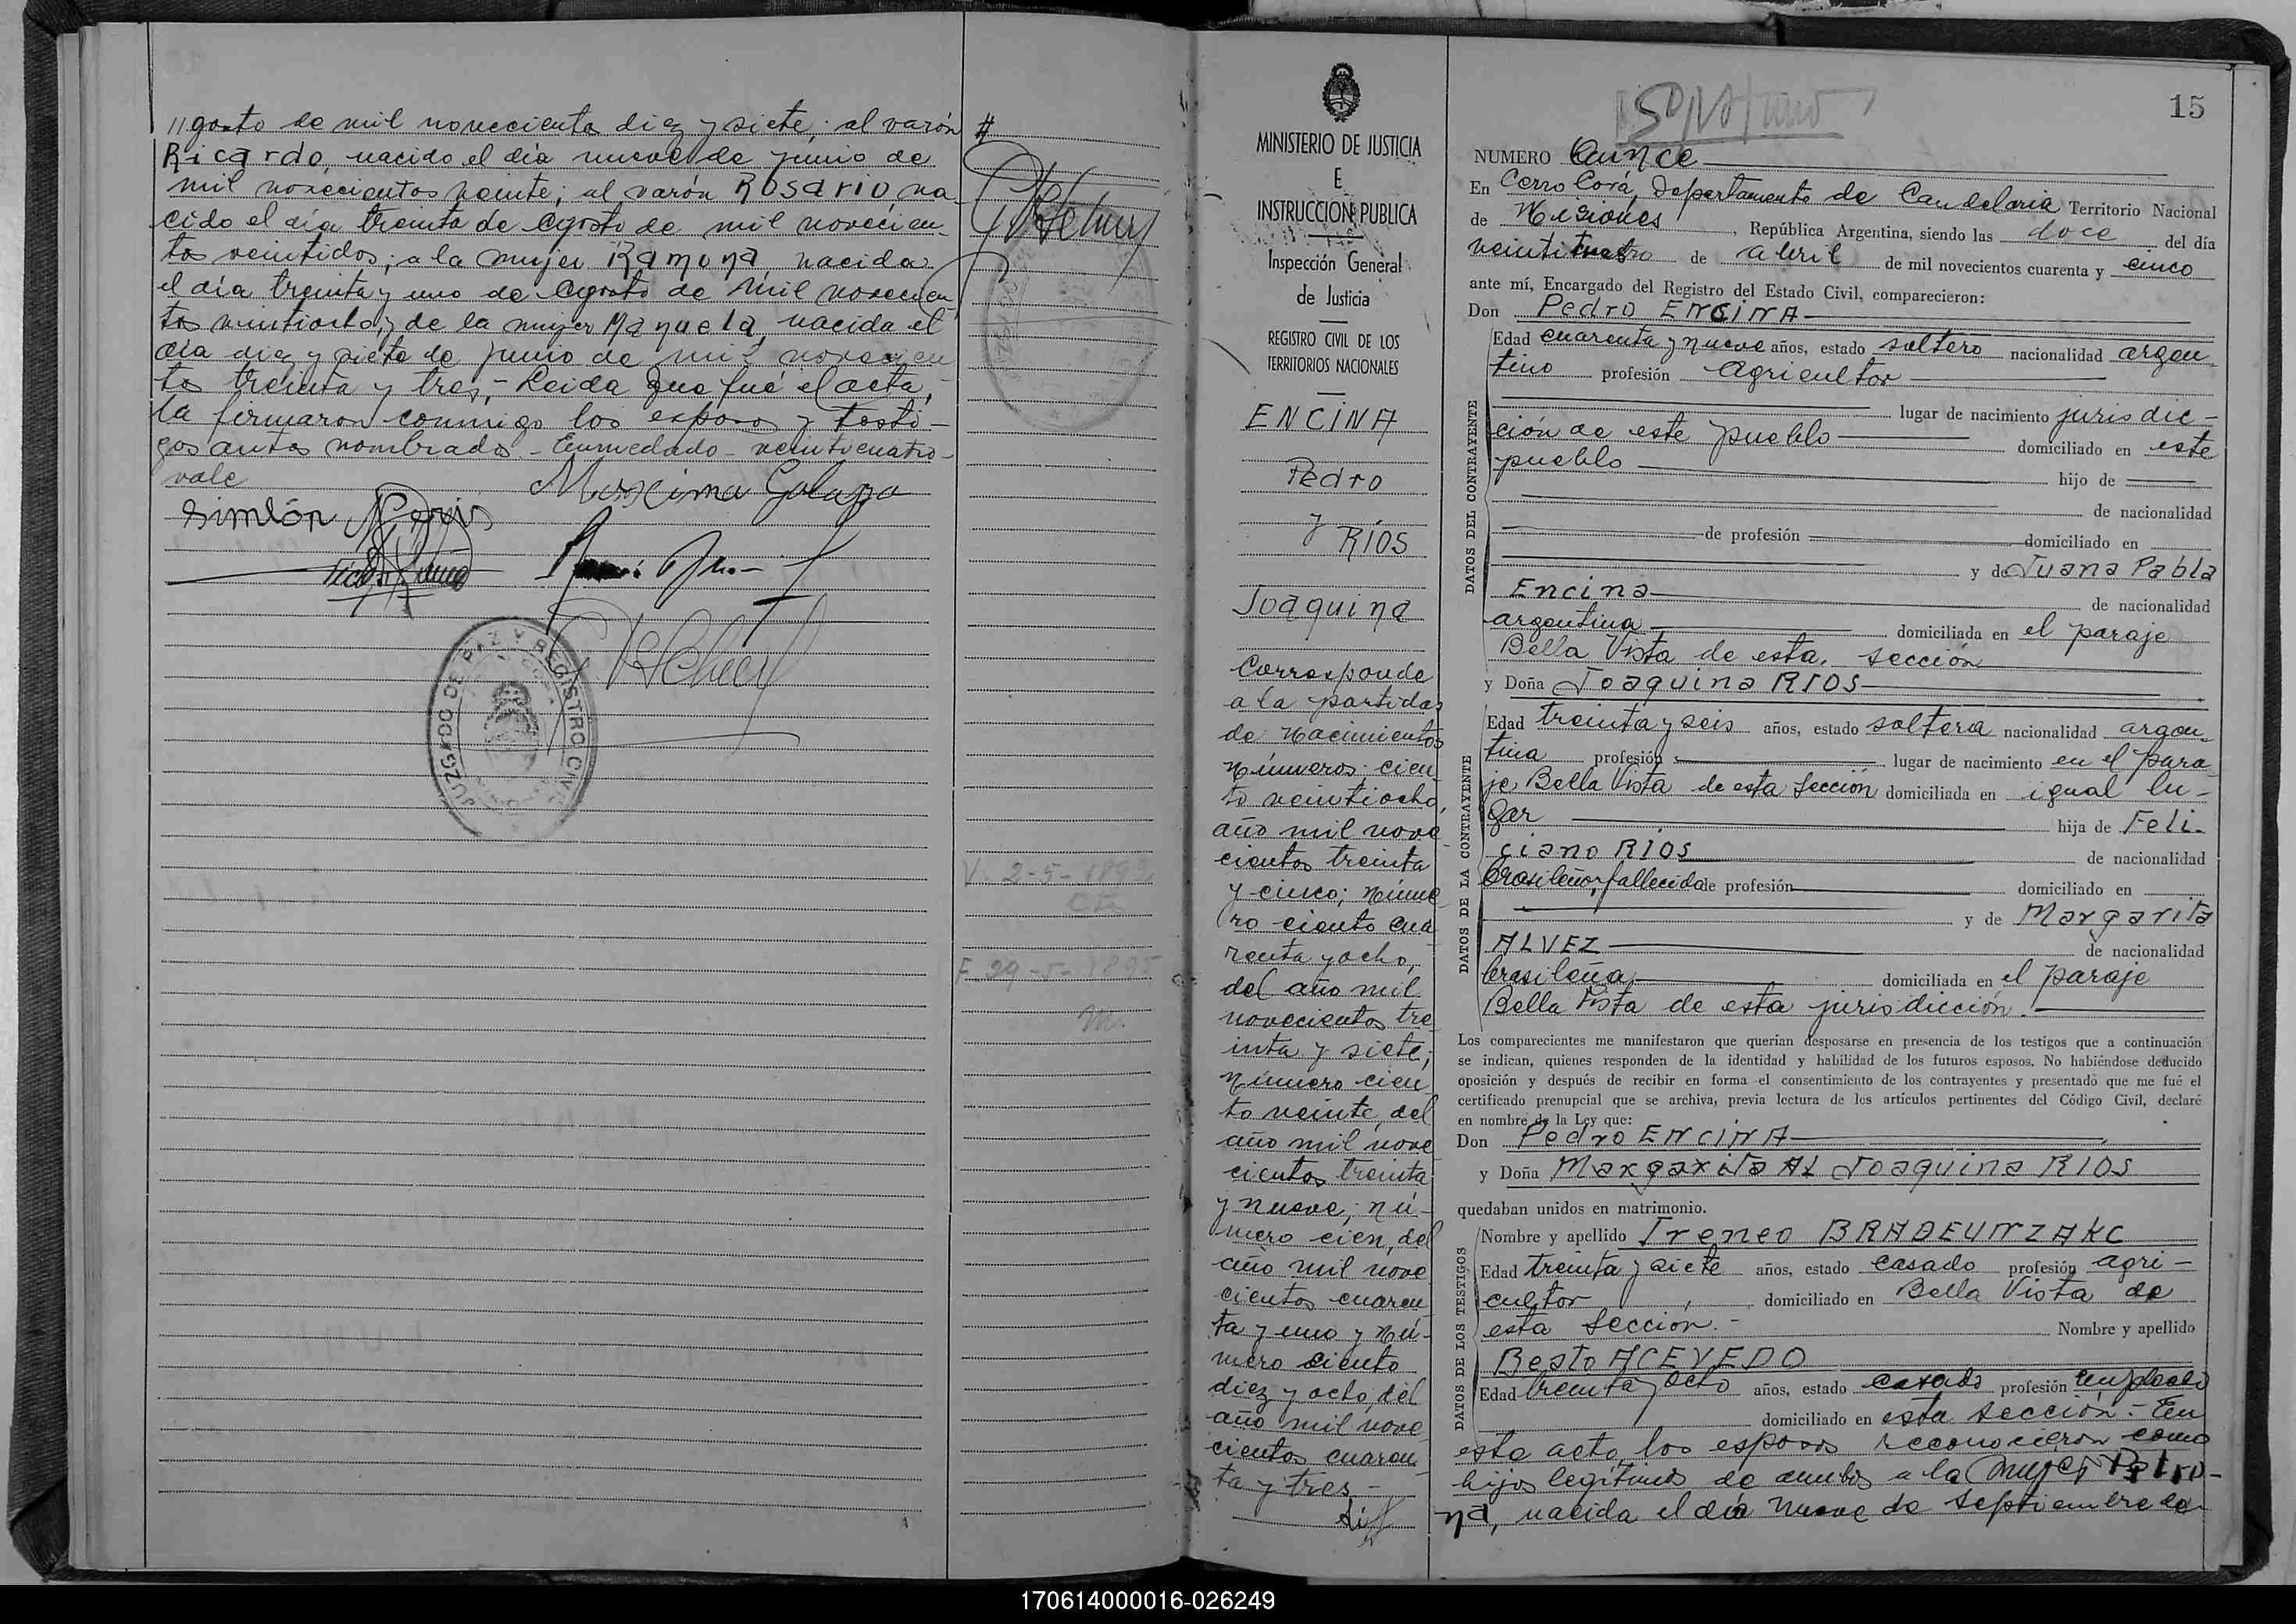 //gosto de mil novecientos diez y siete; al varón
Ricardo, nacido el día nueve de junio de
mil novecientos veinte; al varón Rosario, na-
cido el día treinta de Agosto de mil novecien-
tos veintidos; a la mujer Ramona, nacida
el día treinta y uno de Agosto de mil novecien
tos veintiocho y de la mujer Manuela, nacida el
día diez y siete de junio de mil novecien
tos treinta y tres.- Leida que fué el acta,
la firmaron conmigo los esposos y testi-
gos antes nombrados.- Enmedado - veinticuatro -
vale
Maxima
Simeón
JUZGADO DE PAZ Y REGISTRO CIVIL
V. 2-5-1892
F. 29-5-1895
m.
MINISTERIO DE JUSTICIA
E
INSTRUCCION PUBLICA
Inspección General
de Justicia
REGISTRO CIVIL DE LOS
TERRITORIOS NACIONALES
ENCINA
Pedro
y RÍOS
Joaquina
Corresponde
a la partidas
de Nacimientos
números: cien
to veintiocho,
año mil nove
cientos treinta
y cinco; núme
ro ciento cua
renta y ocho,
del año mil
novecientos tre
inta y siete;
número cien
to veinte, del
año mil nove
cientos treinta
y nueve; nú-
mero cien, del
año mil nove
cientos cuaren
ta y uno y nú-
mero ciento
diez y ocho, del
año mil nove
cientos cuaren
ta y tres.-
15
NUMERO Quince
En Cerro Corá, Departamento de Candelaria Territorio Nacional
de Misiones, República Argentina, siendo las doce del día
veinticuatro de abril de mil novecientos cuarenta y cinco
ante mí, Encargado del Registro del Estado Civil, comparecieron:
Don Pedro ENCINA
DATOS DEL CONTRAYENTE
Edad cuarenta y nueve años, estado soltero nacionalidad argen-
tino profesión Agricultor
lugar de nacimiento jurisdic-
ción de este pueblo domiciliado en este
pueblo hijo de
de nacionalidad
de profesión domiciliado en
y de Juana Pabla
Encina de nacionalidad
argentina domiciliada en el paraje
Bella Vista de esta. sección
y Doña Joaquina RIOS
DATOS DE LA CONTRAYENTE
Edad treinta y seis años, estado soltera nacionalidad argen-
tina profesión lugar de nacimiento en el para-
je Bella Vista de esta Sección domiciliada en igual lu-
gar hija de Feli-
ciano RIOS de nacionalidad
brasileño, fallecido de profesión domiciliado en
y de Margarita
ALVEZ de nacionalidad
brasileña domiciliada en el paraje
Bella Vista de esta jurisdicción.
Los comparecientes me manifestaron que querían desposarse en presencia de los testigos que a continuación
se indican, quienes responden de la identidad y habilidad de los futuros esposos. No habiéndose deducido
oposición y después de recibir en forma el consentimiento de los contrayentes y presentado que me fué el
certificado prenupcial que se archiva, previa lectura de los artículos pertinentes del Código Civil, declaré
en nombre de la Ley que:
Don Pedro ENCINA
y Doña Margarita AL Joaquina RIOS
quedaban unidos en matrimonio.
DATOS DE LOS TESTIGOS
Nombre y apellido Ireneo BRADEUNZAKC
Edad treinta y siete años, estado casado profesión agri-
cultor, domiciliado en Bella Vista de
esta Sección.- Nombre y apellido
Beato ACEVEDO
Edad treinta y ocho años, estado casado profesión empleado
domiciliado en esta sección.- En
este acto, los esposos reconocieron como
hijos legítimos de ambos a la mujer Petro-
na, nacida el día nueve de septiembre de
170614000016-026249